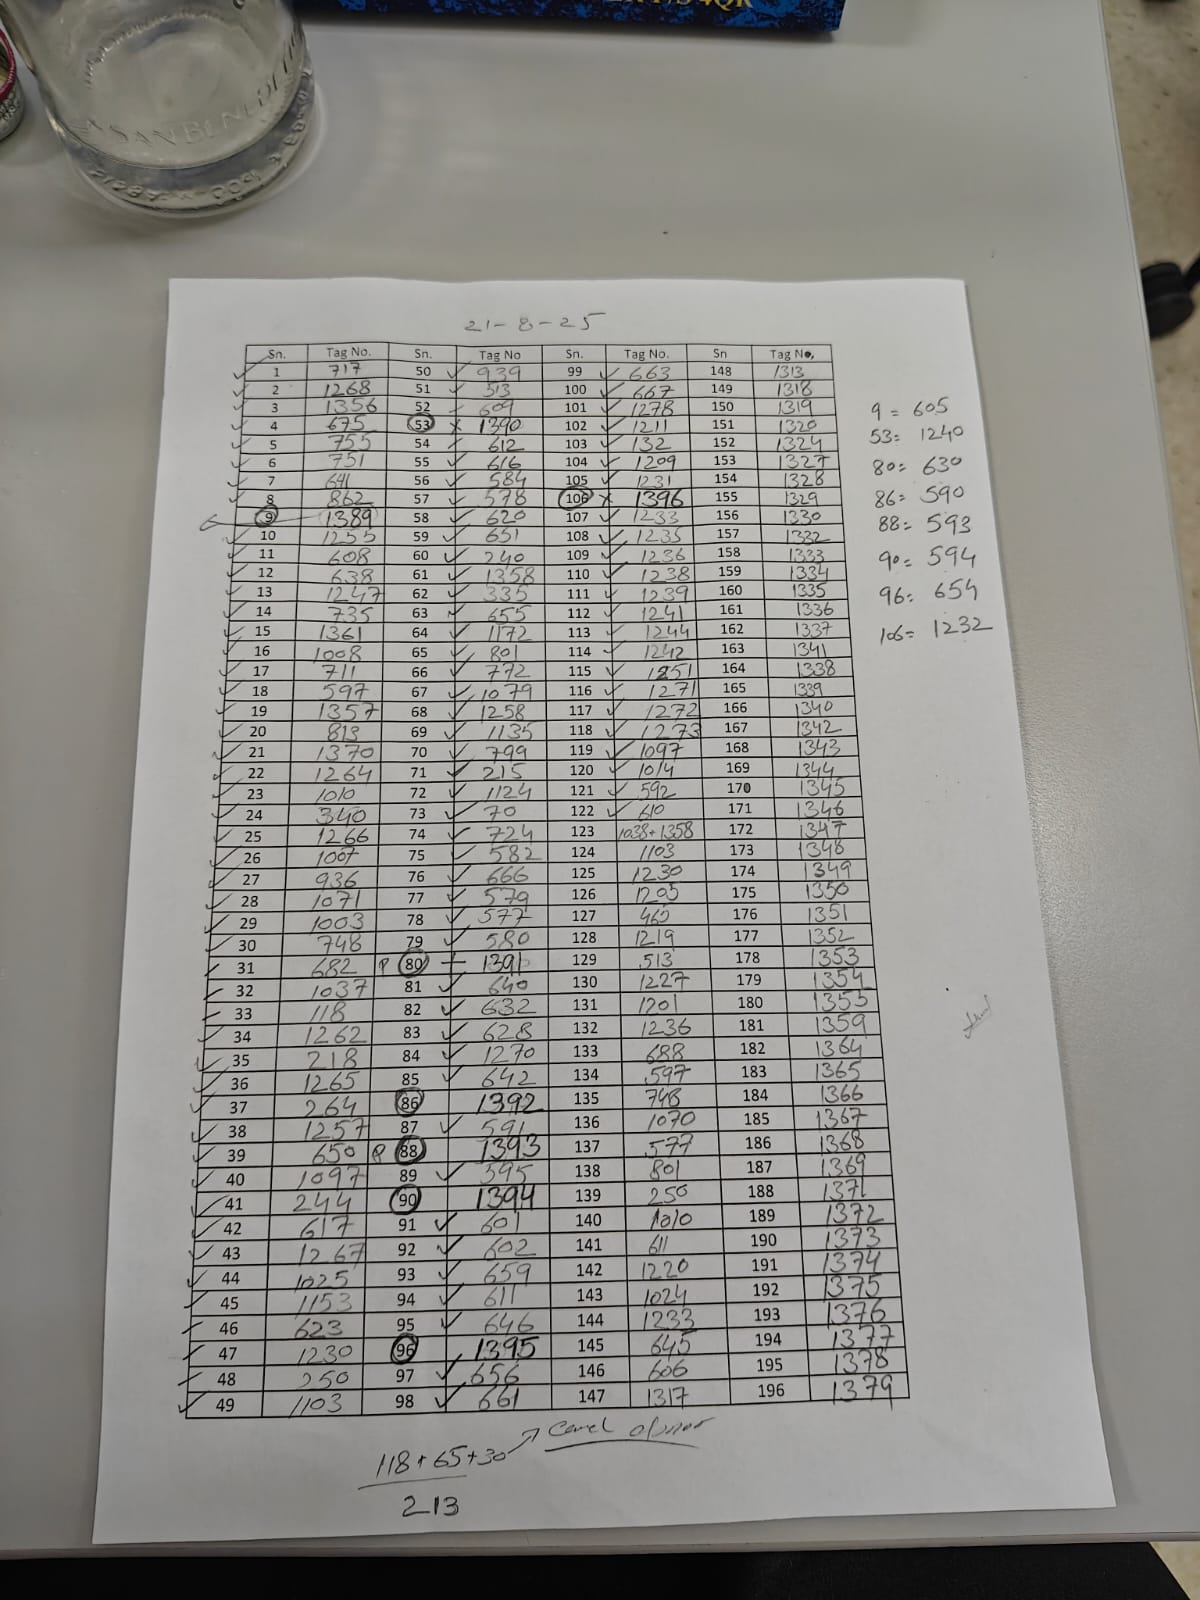 SAN BENEDETTO
21-8-25
Sn. Tag No. Sn. Tag No Sn. Tag No. Sn Tag No,
1 717 50 939 99 663 148 1313
2 1268 51 513 100 667 149 1318
3 1356 52 609 101 1278 150 1319
4 675 53 x 1390 102 1211 151 1320
5 755 54 612 103 132 152 1324
6 751 55 616 104 1209 153 1327
7 641 56 584 105 1231 154 1328
8 862 57 578 106 x 1396 155 1329
9 1389 58 620 107 1233 156 1330
10 1255 59 651 108 1235 157 1332
11 608 60 240 109 1236 158 1333
12 638 61 1358 110 1238 159 1334
13 1247 62 335 111 1239 160 1335
14 735 63 655 112 1241 161 1336
15 1361 64 1172 113 1244 162 1337
16 1008 65 801 114 1242 163 1341
17 711 66 772 115 1251 164 1338
18 597 67 1079 116 1271 165 1339
19 1357 68 1258 117 1272 166 1340
20 813 69 1135 118 1273 167 1342
21 1370 70 799 119 1097 168 1343
22 1264 71 215 120 1014 169 1344
23 1010 72 1124 121 592 170 1345
24 340 73 70 122 610 171 1346
25 1266 74 724 123 1038+1358 172 1347
26 1007 75 582 124 1103 173 1348
27 936 76 666 125 1230 174 1349
28 1071 77 579 126 1205 175 1350
29 1003 78 577 127 127 176 1351
30 748 79 580 128 1219 177 1352
31 682 80 1391 129 513 178 1353
32 1037 81 640 130 1227 179 1354
33 118 82 632 131 1201 180 1355
34 1262 83 628 132 1236 181 1359
35 218 84 1270 133 688 182 1364
36 1265 85 642 134 597 183 1365
37 264 86 1392 135 748 184 1366
38 1257 87 591 136 1070 185 1367
39 650 88 1393 137 577 186 1368
40 1097 89 595 138 801 187 1369
41 244 90 1394 139 250 188 1371
42 617 91 601 140 1010 189 1372
43 1267 92 602 141 611 190 1373
44 1025 93 659 142 1220 191 1374
45 1153 94 611 143 1024 192 1375
46 623 95 646 144 1233 193 1376
47 1230 96 1395 145 645 194 1377
48 250 97 656 146 606 195 1378
49 1103 98 661 147 1317 196 1379
9 = 605
53: 1240
80= 630
86= 590
88= 593
90= 594
96= 654
106= 1232
118+65+30
213